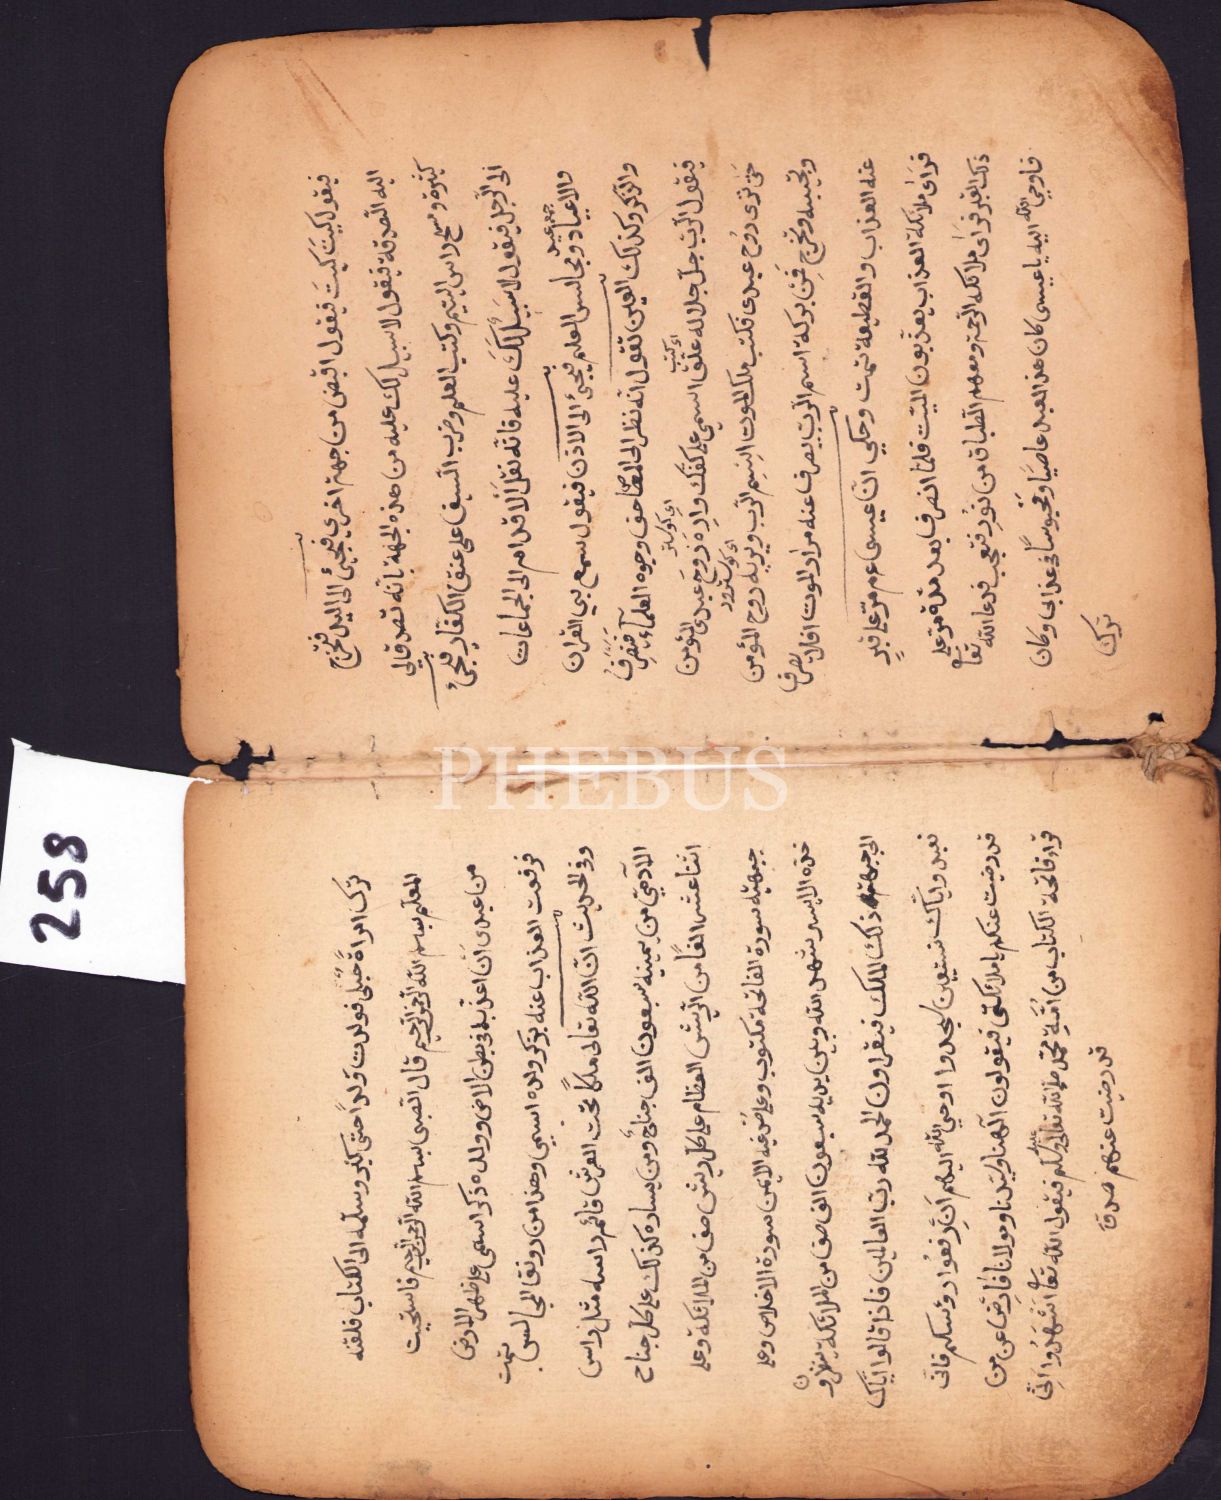 فيقول كيت كيت فيقول القبض من جهة اخرى فيجئ الى اليد فتخرج
اليه الصدقة فيقول لا سبيل لك عليه من هذه الجهة بانه تصدق الى
كثيرة ومسح راس اليتيم وكتب العلم وضرب السيف على عنق الكفار فيجئ
الى الرجل فيقول لا سبيل لك عليه فانه نقل الاقدام الى الجماعات
والاعياد ومجالس العلم فيجئ الى الاذن فيقول سمع بي القران
والذكر وكذلك العين تقول انه نظر الى المصاحف ووجوه العلماء فينصرف
فيقول الرب جل جلاله علق اسمي على كفك واره روح عبدى المؤمن
حتى ترى روح عبدى فكتب ملك الموت اسم الرب ويريه روح المؤمن
وتحيبه وتخرج فمن بركة اسم الرب يصرف عنه مراد الموت افلا يصرف
عنه العذاب والقطيعة تمت وحكي ان عيسى ع م مر على قبر
فراى ملائكة العذاب يعذبون الميت فلما انصرف بعد مدة مر على
ذلك القبر فراى ملائكة الرحمة ومعهم الطباق من نور فتعجب فدعا الله تعا
فاوحي الله اليه يا عيسى كان هذا العبد عاصيا ومحبوسا في عذابى وكان
ترك
ترك امراة حبلى فولدت ولدا حتى كبر وسلمه الى الكتاب فلقنه
المعلم بسم الله الرحمن الرحيم قال الصبى بسم الله الرحمن الرحيم فاستحييت
من عبدى ان اعذبه في بطن الارض وولده ذكر اسمى على ظهر الارض
فرفعت العذاب عنه بذكر ولده اسمي وهذا من رونق المجالس تمت
وفى الحديث ان الله تعالى ملكا تحت العرش قائم راسه مثل راس
الآدمي من يمينه سبعون الف جناح ومن يساره كذلك على كل جناح
اثنا عشر الفا من الريش العظام على كل ريش صف من الملائكة وعلى
جبهته سورة الفاتحة مكتوب وعلى خده الايمن سورة الاخلاص وعلى
خده الايسر شهد الله وبين يديه سبعون الف صف من الملائكة ينظرون
الى جبهة ذلك الملك فيقراون الحمد لله رب العالمين فاذا قالوا اياك
نعبد واياك نستعين سجدوا اوحي الله اليهم ان ارفعوا رؤسكم فانى
قد رضيت عنكم يا ملائكتى فيقولون الهنا وسيدنا ومولانا فارض عن من
قراء فاتحة الكتاب من امة محمد صلى الله تعالى عليه وسلم فيقول الله تعا اشهدوا انى
قد رضيت عنهم صدق
258
PHEBUS